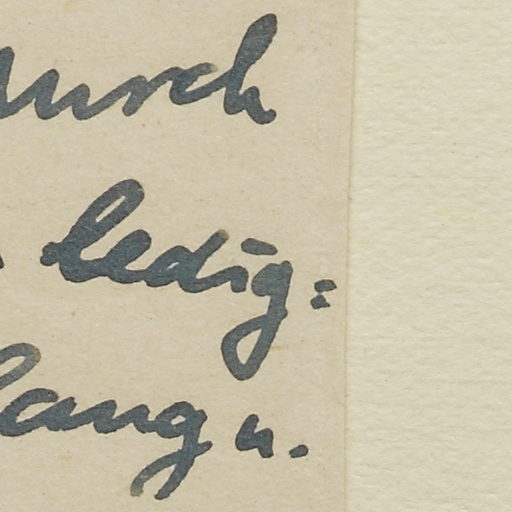 durch
ledig=
lang u.